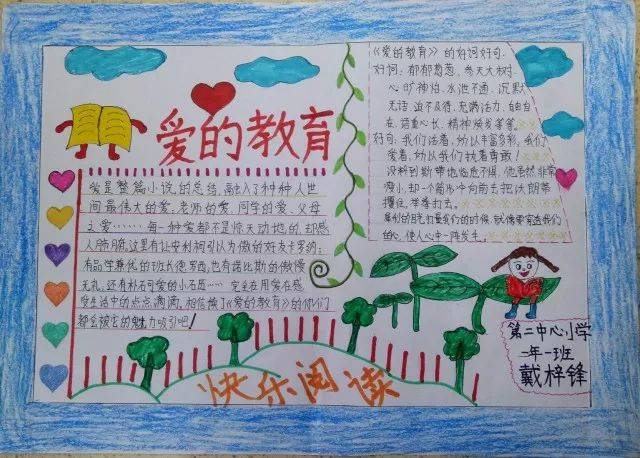 爱的教育
爱是整篇小说的总结,融入了种种人世
间最伟大的爱,老师的爱,同学的爱,父母
之爱……每一种爱都不是惊天动地的,却感
人肺腑,这里有让安利柯引以为傲的好友卡罗纳;
有品学兼优的班长德罗西,也有诺比斯的傲慢
无礼,还有朴可爱的小石匠……完全在用爱在感
受生活中的点点滴滴,相信读了《爱的教育》的你们
都会被它的魅力吸引吧!
《爱的教育》的好词好句
好词:郁郁葱葱,参天大树
心旷神怡,水泄不通,沉默
无语,迫不及待,充满活力,自由自
在,语重心长,精神焕发等等。
好句:我们活着,所以丰富多彩,我们
爱着,所以我们执着勇敢!
没料到斯带地临危不惧,他虽然非常
瘦小,却一个箭步冲向前去把
攥住,举拳打去。
的目光打量我们的时候,就像带有
的心,使人心中一阵发毛。
快乐阅读
第二中心小学
二年一班
戴梓锋